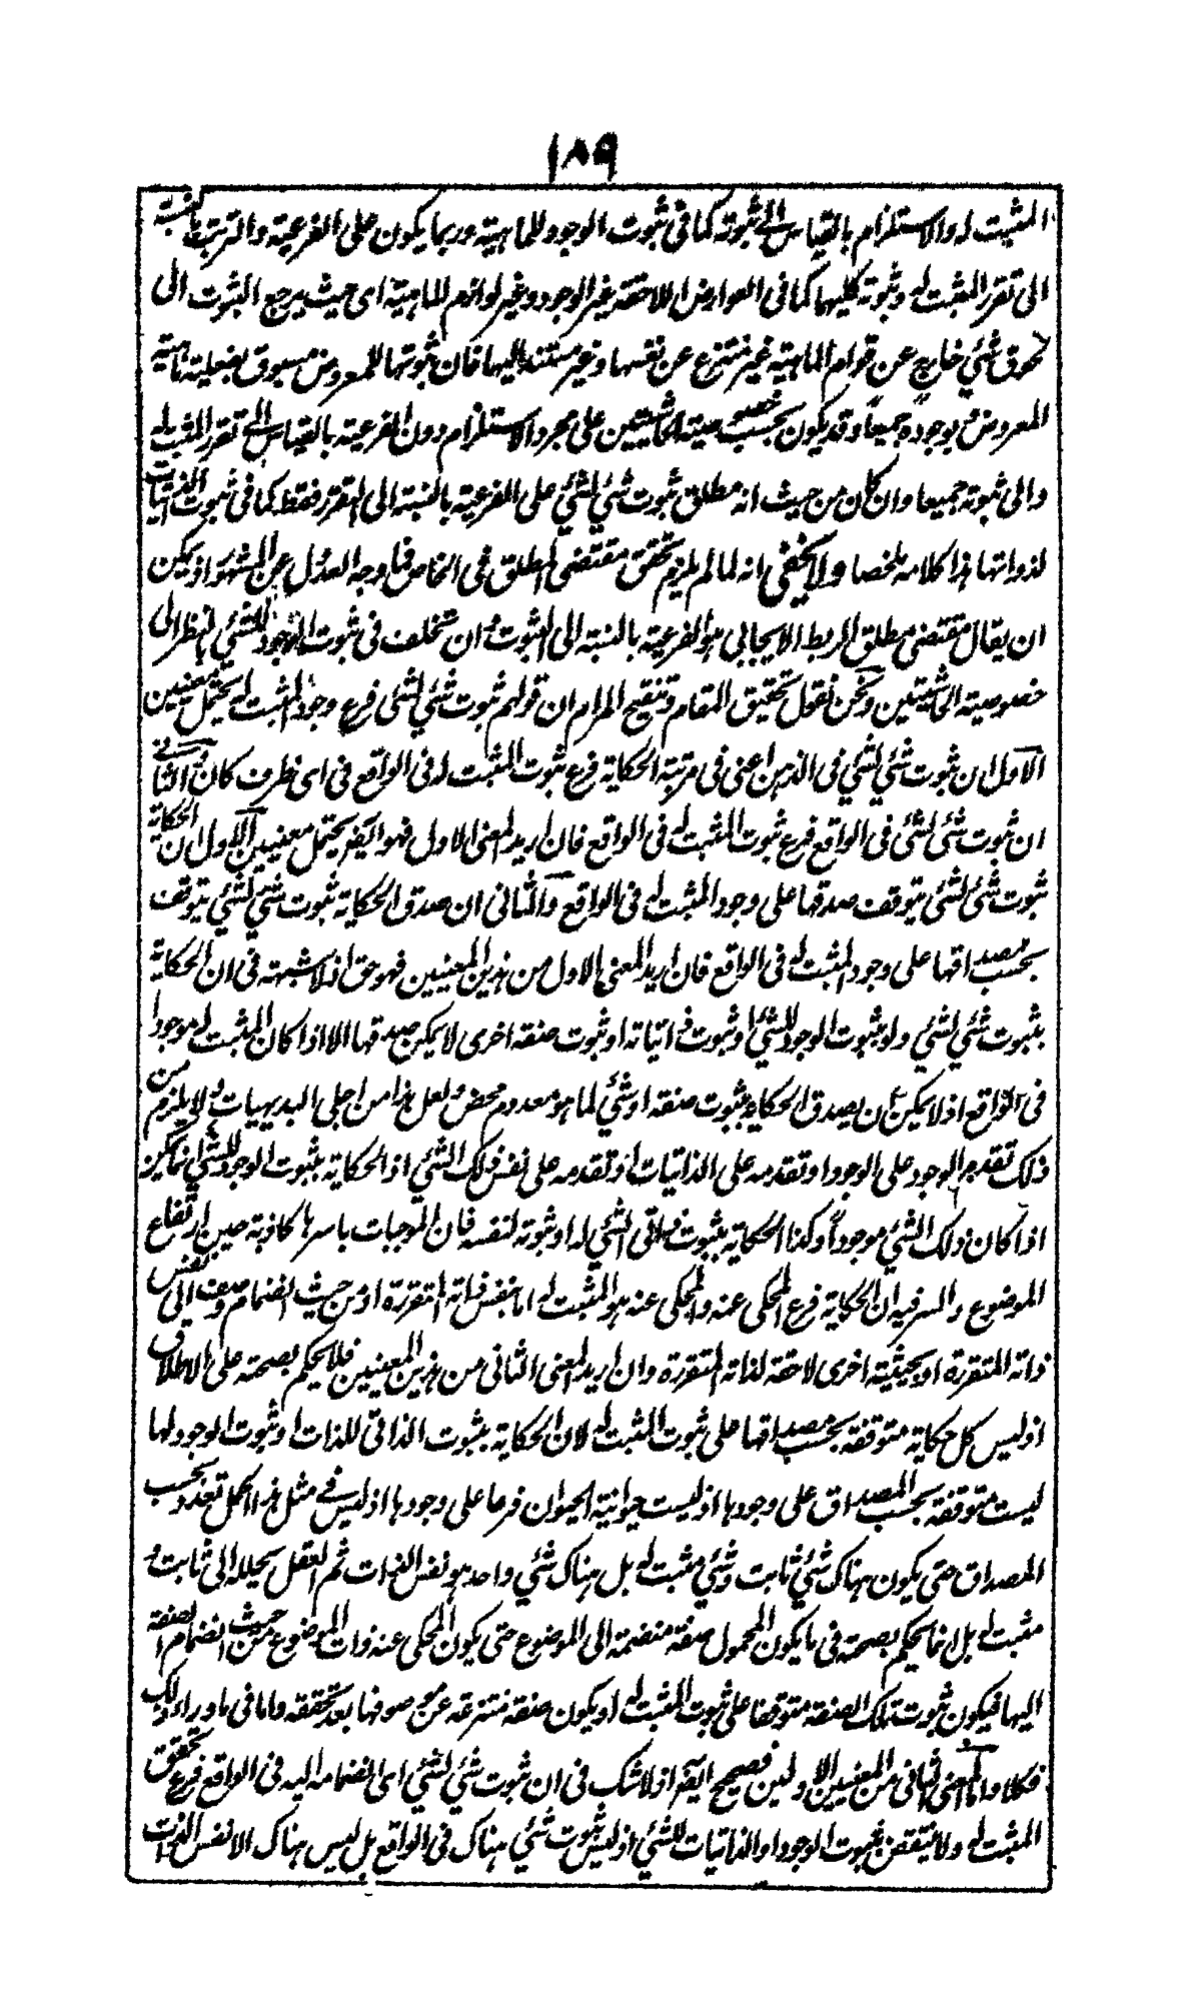 ١٨٩
المثبت له والاستلزام بالقياس الى ثبوته كما فى ثبوت الوجود للماهية وربما يكون على الفرعية والترتب بالنسبة
الى تقرر المثبت له وثبوته كليهما كما فى العوارض اللاحقة غير الوجود وغير لوازم الماهية اى حيث يرجع الثبوت الى
لحوق شئ خارج عن قوام الماهية غير منتزع عن نفسها وغير مستند اليها فان ثبوتها للمعروض مسبوق بفعلية ماهية
المعروض ووجوده جميعا وقد يكون بحسب خصوصية الحاشيتين على مجرد الاستلزام دون الفرعية بالقياس الى تقرر المثبت له
والى ثبوته جميعا وان كان من حيث انه مطلق ثبوت شئ لشئ على الفرعية بالنسبة الى التقرر فقط كما فى ثبوت الذاتيات
لذواتها هذا كلامه ملخصا ولا يخفى انه لما لم يلزم تحقق مقتضى المطلق فى الخاص فما وجه العدول عن المشهور اذ يمكن
ان يقال مقتضى مطلق الربط الايجابى هو الفرعية بالنسبة الى الثبوت وان تخلف فى ثبوت الوجود للشئ بالنظر الى
خصوصية الحاشيتين ونحن نقول تحقيق المقام وتنقيح المرام ان قولهم ثبوت شئ لشئ فرع وجود المثبت له يحتمل معنيين
الاول ان ثبوت شئ لشئ فى الذهن اعنى فى مرتبة الحكاية فرع ثبوت المثبت له فى الواقع فى اى ظرف كان والثانى
ان ثبوت شئ لشئ فى الواقع فرع ثبوت المثبت له فى الواقع فان اريد المعنى الاول فهو ايضا يحتمل معنيين الاول ان الحكاية
ثبوت شئ لشئ يتوقف صدقها على وجود المثبت له فى الواقع والثانى ان صدق الحكاية ثبوت شئ لشئ يتوقف
بحسب مصداقها على وجود المثبت له فى الواقع فان اريد المعنى الاول من هذين المعنيين فهو حق اذ لا شبهة فى ان الحكاية
بثبوت شئ لشئ ولو بثبوت الوجود للشئ او ثبوت ذاتياته او ثبوت صفة اخرى لا يمكن صدقها الا اذا كان المثبت له موجودا
فى الواقع اذ لا يمكن ان يصدق الحكاية بثبوت صفة او شئ لما هو معدوم محض ولعل هذا من اجلى البديهيات ولا يلزم من
ذلك تقدم الوجود على الوجود او تقدمه على الذاتيات او تقدمه على نفس ذلك الشئ اذ الحكاية بثبوت الوجود للشئ انما يمكن
اذا كان ذلك الشئ موجودا وكذا الحكاية بثبوت ذاتى الشئ له او ثبوته لنفسه فان الموجبات باسرها كاذبة حين ارتفاع
الموضوع والسر فيه ان الحكاية فرع المحكى عنه والمحكى عنه هو المثبت له اما بنفس ذاته المتقررة او من حيث انضمام وصف الى نفس
ذاته المتقررة او بحيثية اخرى لاحقة لذاته المتقررة وان اريد المعنى الثانى من هذين المعنيين فلا يحكم بصحته على الاطلاق
اذ ليس كل حكاية متوقفة بحسب مصداقها على ثبوت المثبت له لان الحكاية بثبوت الذاتى للذات او ثبوت الوجود لها
ليست متوقفة بحسب المصداق على وجودها اذ ليست حيوانية الحيوان فرعا على وجودها اذ ليس فى مثل هذا الحمل تعدد بحسب
المصداق حتى يكون هناك شئ ثابت وشئ مثبت له بل هناك شئ واحد هو نفس الذات ثم العقل يحلله الى ثابت و
مثبت له بل انما يحكم بصحته فى ما يكون المحمول صفة منضمة الى الموضوع حتى يكون المحكى عنه ذات الموضوع من حيث انضمام الصفة
اليها فيكون ثبوت تلك الصفة متوقفا على ثبوت المثبت له او يكون صفة منتزعة عن موصوفها بعد تحققه واما فى ما وراء ذلك
فكلا واما المعنى الثانى من المعنيين الاولين فصحيح ايضا اذ لا شك فى ان ثبوت شئ لشئ اى انضمامه اليه فى الواقع فرع تحقق
المثبت له ولا ينتقض بثبوت الوجود او الذاتيات للشئ اذ ليس ثبوت شئ هناك فى الواقع بل ليس هناك الا نفس الذات